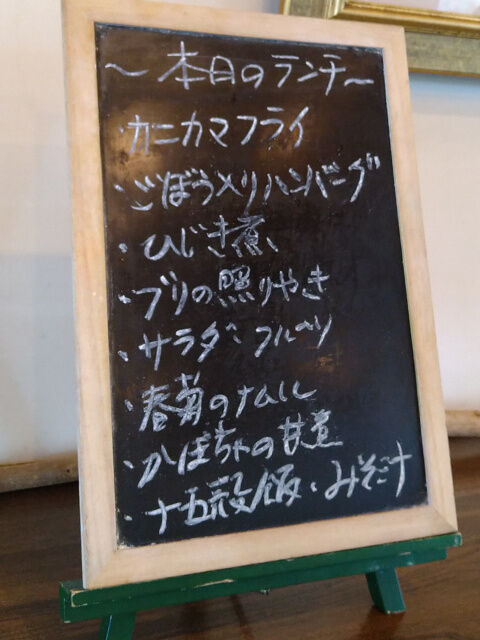 ～本日のランチ～
・カニカマフライ
・ごぼう入りハンバーグ
・ひじき煮
・ブリの照りやき
・サラダ・フルーツ
・春菊のナムル
・かぼちゃの甘煮
・十五穀飯・みそ汁